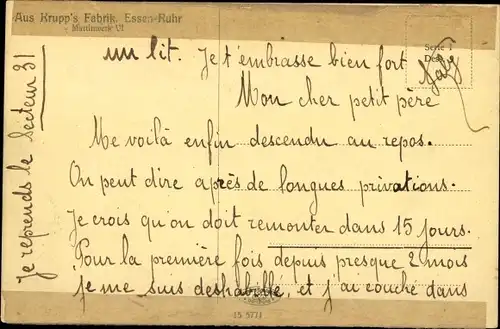 Aus Krupp's Fabrik, Essen-Ruhr
Martinwerk VI
Serie I
un lit. Je t'embrasse bien fort
Mon cher petit père
Me voilà enfin descendu au repos.
On peut dire après de longues privations.
Je crois qu'on doit remonter dans 15 jours.
Pour la première fois depuis presque 2 mois
je me suis deshabillé, et j'ai couché dans
Je reprends le secteur 31
15 5771